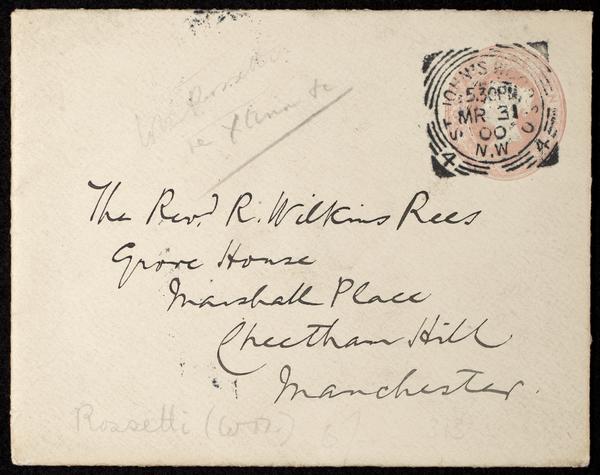 Rossetti
re
ST JOHN'S
5.30PM
MR 31
00
N.W
4 4
The Revd. R. Wilkins Rees
Grove House
Marshall Place
Cheetham Hill
Manchester.
Rossetti (W.M.)